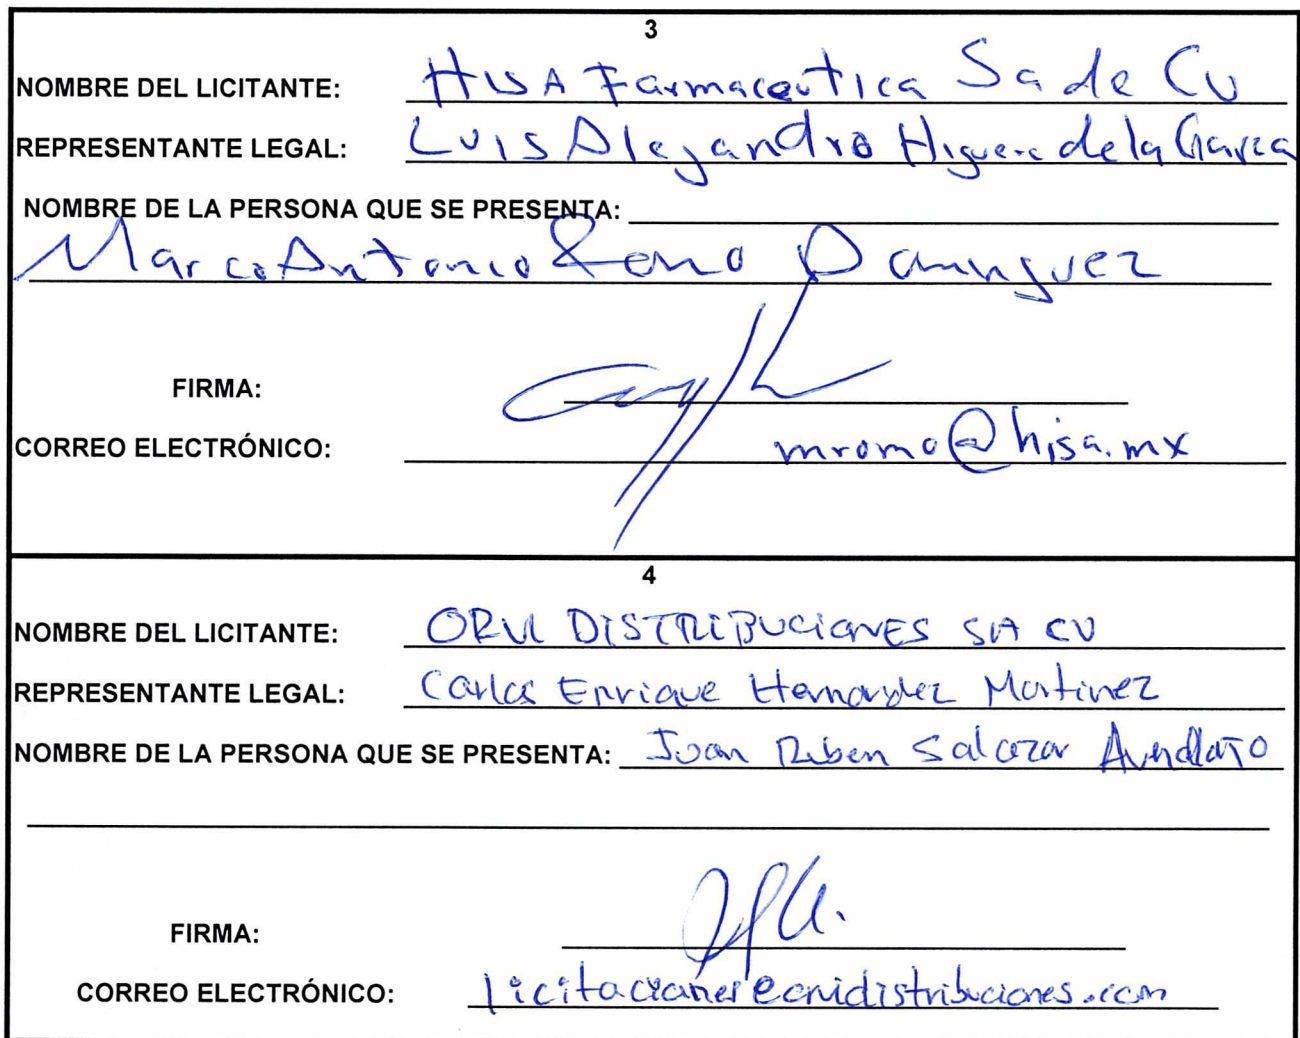 3
NOMBRE DEL LICITANTE: HISA Farmaceutica Sa de CV
REPRESENTANTE LEGAL: Luis Alejandro Higuera de la Garza
NOMBRE DE LA PERSONA QUE SE PRESENTA:
Marco Antonio Romo Dominguez
FIRMA:
CORREO ELECTRÓNICO: mromo@hisa.mx
4
NOMBRE DEL LICITANTE: ORVI DISTRIBUCIONES SA CV
REPRESENTANTE LEGAL: Carlos Enrique Hernandez Martinez
NOMBRE DE LA PERSONA QUE SE PRESENTA: Juan Ruben Salazar
FIRMA:
CORREO ELECTRÓNICO: licitaciones@orvidistribuciones.com